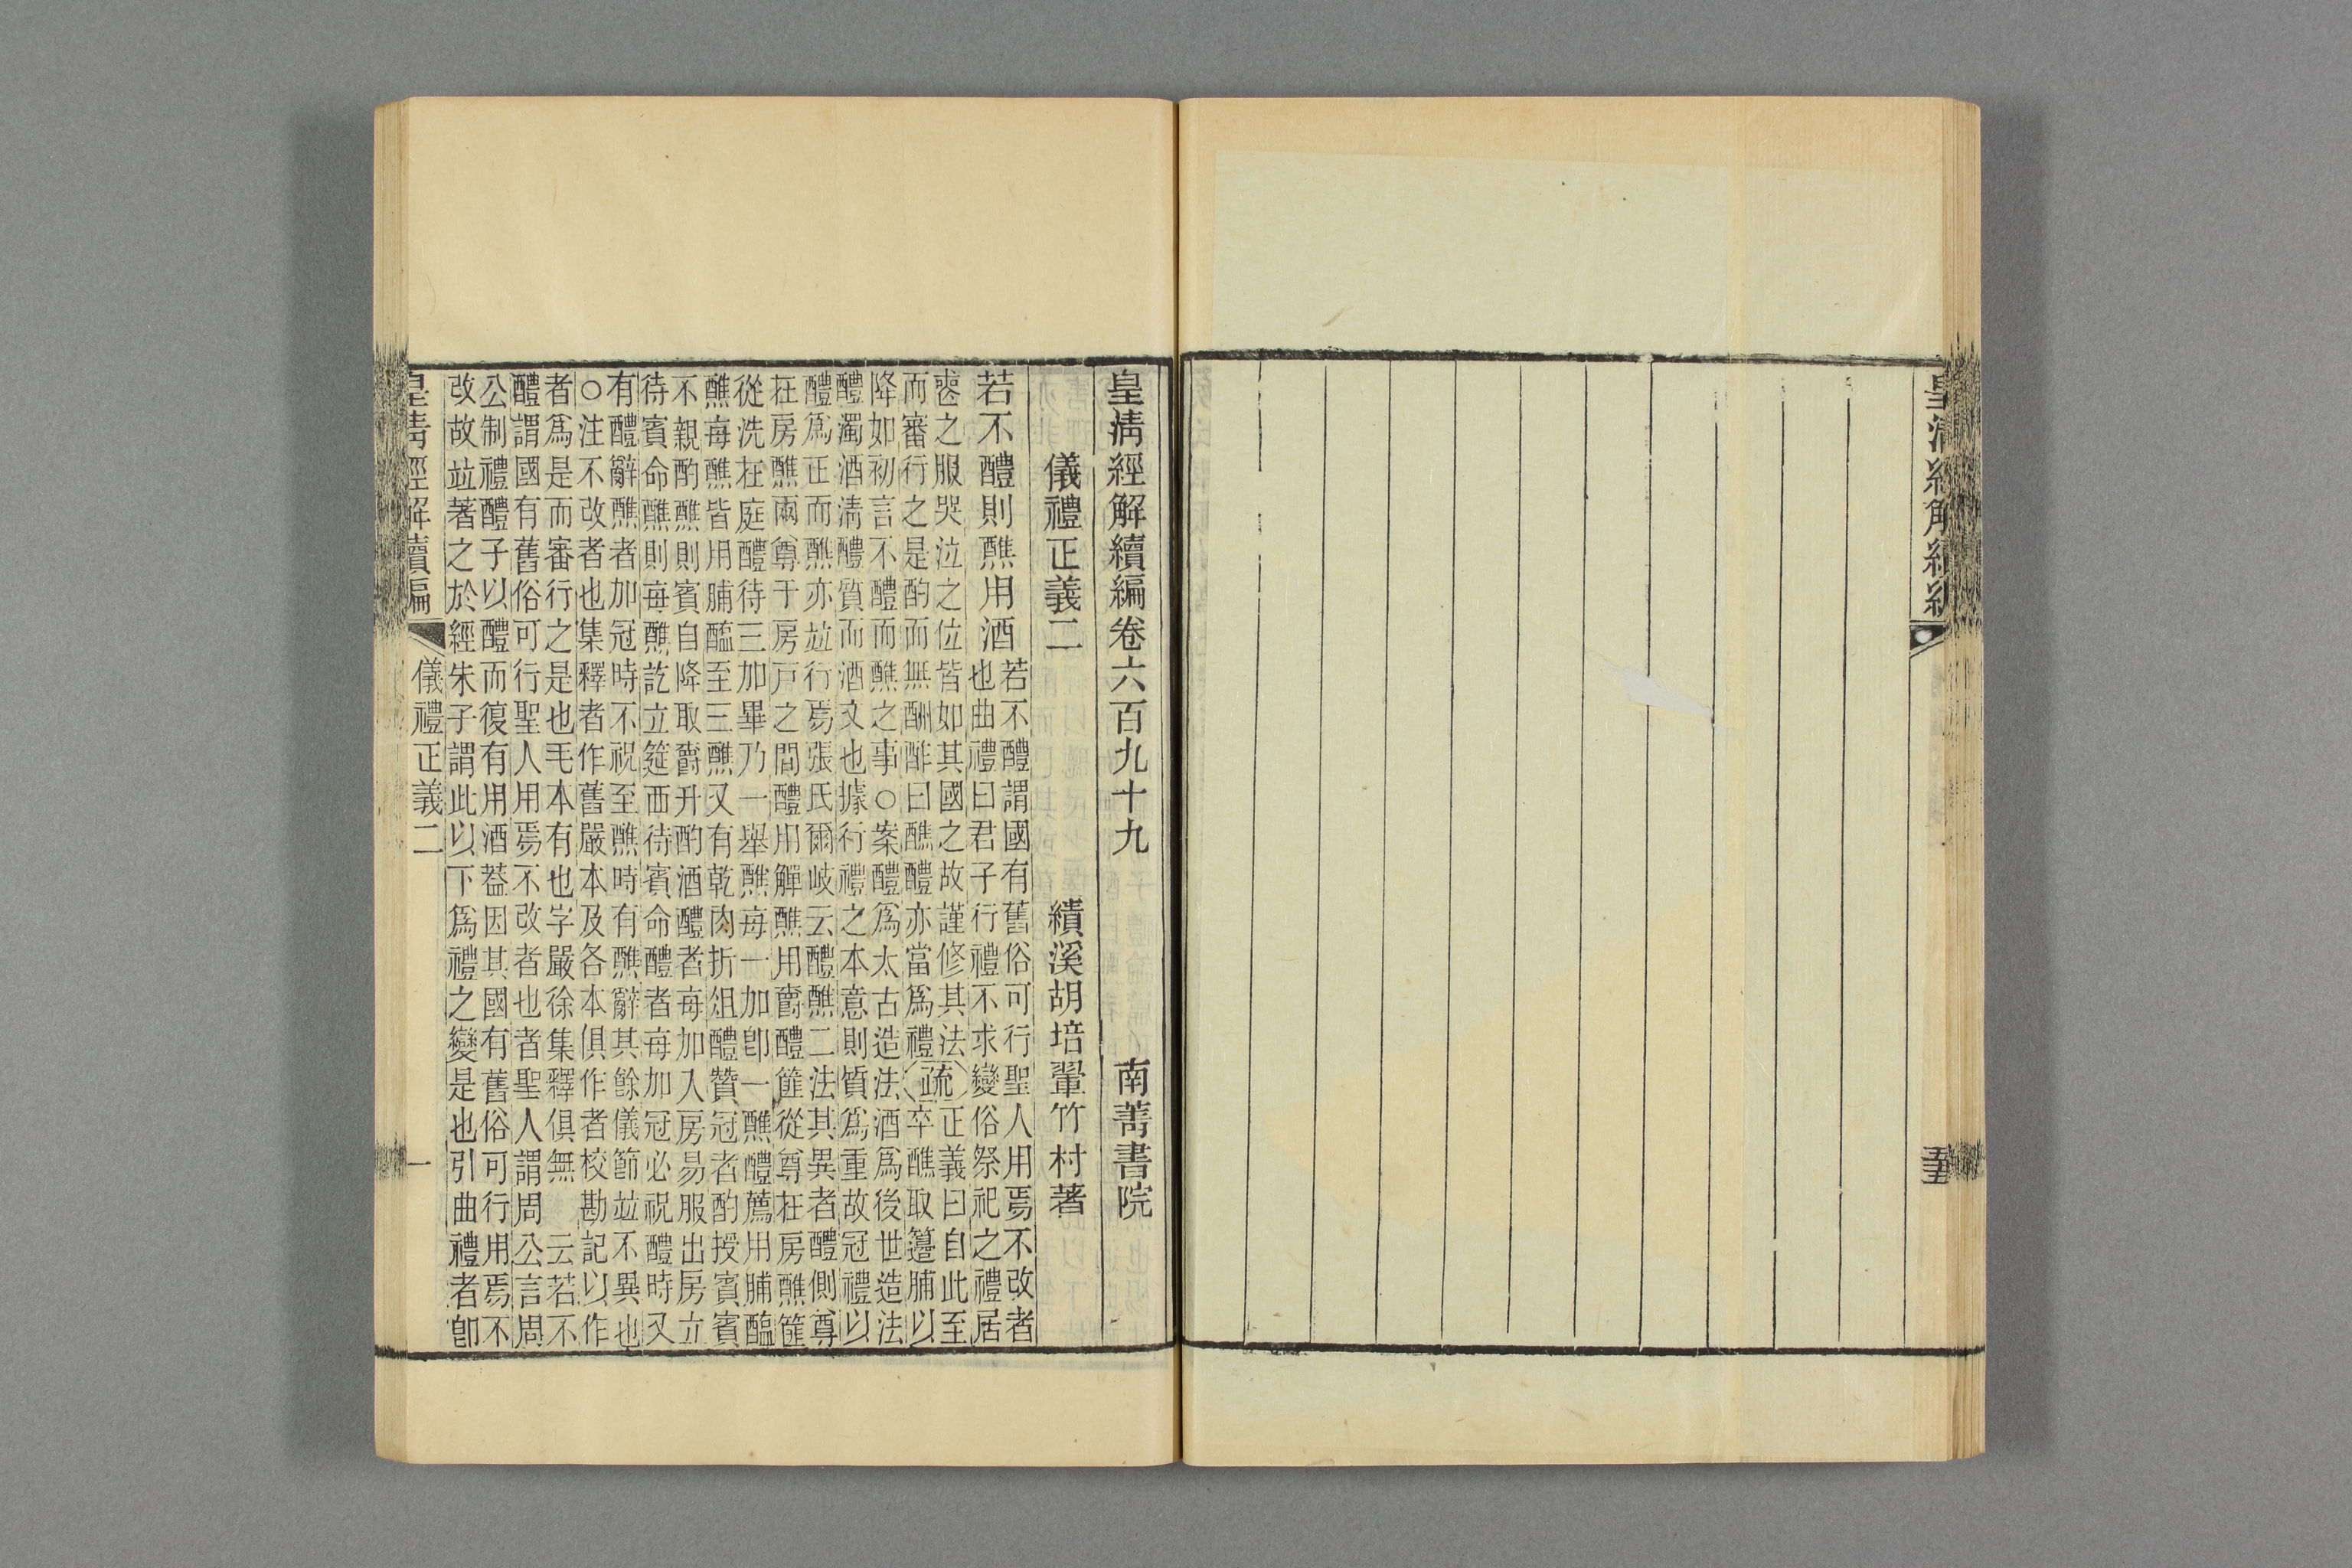 皇清經解續編卷六百九十九　南菁書院
儀禮正義二　績溪胡培翬竹村著
若不醴則醮用酒
若不醴謂國有舊俗可行聖人用焉不改者
也曲禮曰君子行禮不求變俗祭祀之禮居
喪之服哭泣之位皆如其國之故謹修其法
而審行之是酌而無酬酢曰醮醴亦當爲禮
疏
正義曰自此至
卒醮取籩脯以
降如初言不醴而醮之事○案醴爲太古造法酒爲後世造法
醴濁酒清醴質而酒文也據行禮之本意則質爲重故冠禮以
醴爲正而醮亦竝行焉張氏爾岐云醴醮二法其異者醴側尊
在房醮兩尊于房戶之間醴用觶醮用爵醴篚從尊在房醮篚
從洗在庭醴待三加畢乃一舉醮每一加卽一醮醴薦用脯醢
醮每醮皆用脯醢至三醮又有乾肉折俎醴贊冠者酌授賓賓
不親酌醮則賓自降取爵升酌酒醴者每加入房易服出房立
待賓命醮則每醮訖立筵西待賓命醴者每加冠必祝醴時又
有醴辭醮者加冠時不祝至醮時有醮辭其餘儀節竝不異也
○注不改者也集釋者作舊嚴本及各本俱作者校勘記以作
者爲是而審行之是也毛本有也字嚴徐集釋俱無　云若不
醴謂國有舊俗可行聖人用焉不改者也者聖人謂周公言周
公制禮醴子以醴而復有用酒葢因其國有舊俗可行用焉不
改故竝著之於經朱子謂此以下爲禮之變是也引曲禮者卽
皇清經解續編　儀禮正義二　一